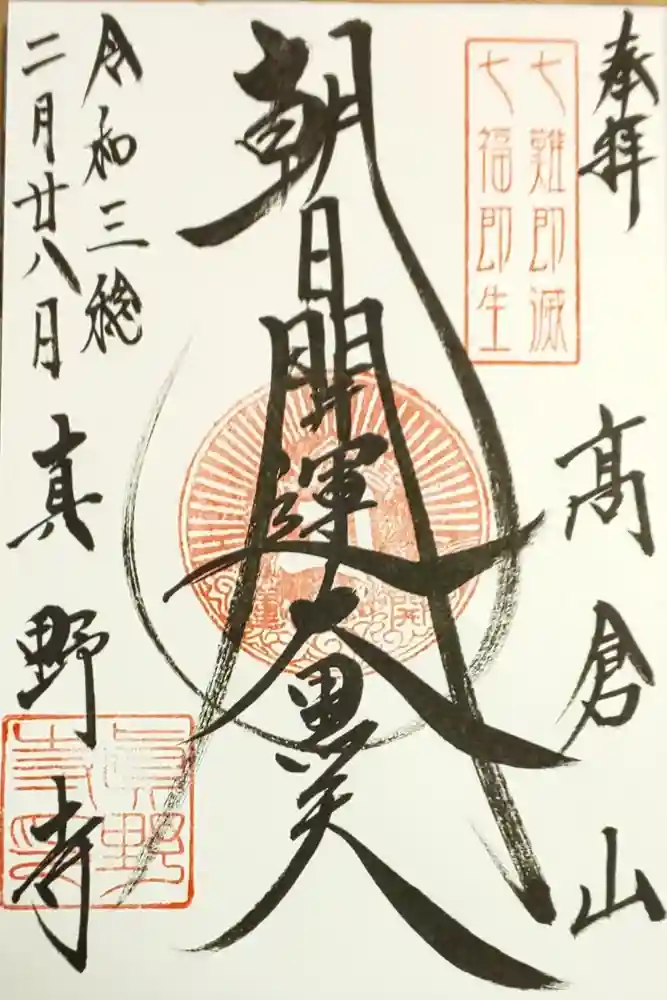 奉拝
七難即滅
七福即生
高倉山
朝日開運大黒天
令和三稔
二月廿八日
真野寺
眞野寺印